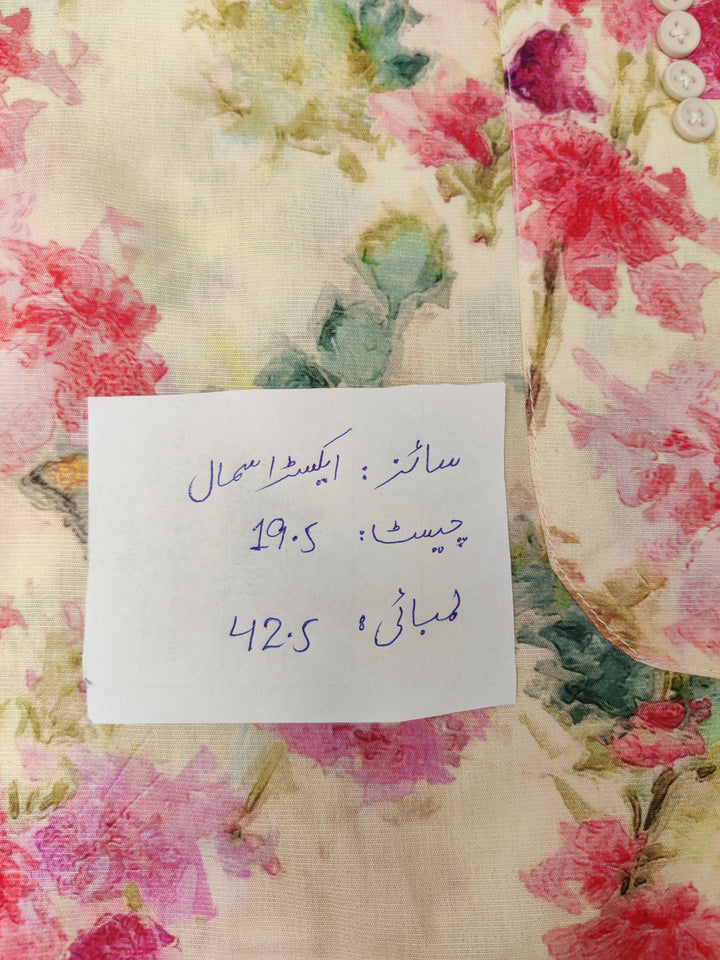 سائز: ایکسٹرا سمال
چیسٹ: 19.5
لمبائی: 42.5